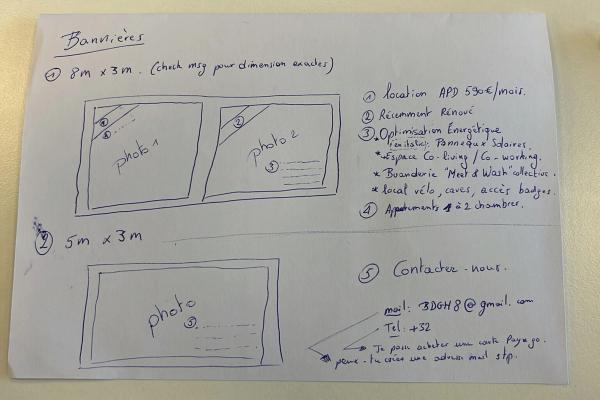 Bannières
① 8m x 3m. (check msg pour dimension exactes)
① location APD 590€/mois.
② Récemment Rénové
③ Optimisation Énergétique
Panneaux Solaires.
* Espace Co-living / Co-working.
* Buanderie "Meet & Wash" collective.
* local vélo, caves, accès badges.
④ Appartements 1 à 2 chambres.
①
④
photo 1
②
photo 2
③
② 5m x 3m
photo
⑤
⑤ Contactez-nous.
mail: 3DGH8@gmail.com
Tel: +32
Je pars acheter une carte Pay&go.
peux-tu créer une adresse mail stp.